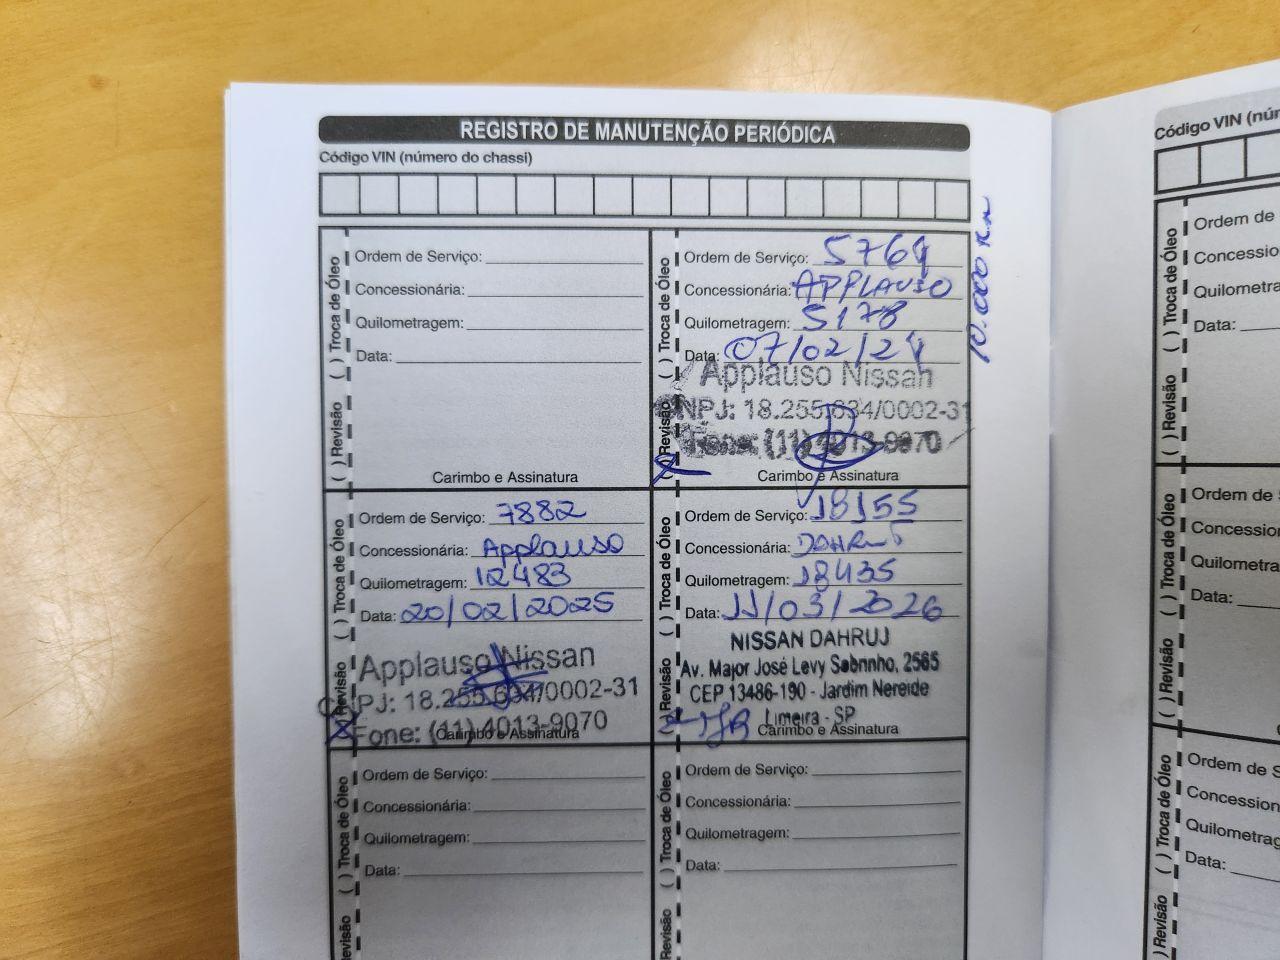 REGISTRO DE MANUTENÇÃO PERIÓDICA
Código VIN (número do chassi)
( ) Revisão ( ) Troca de Óleo
Ordem de Serviço:
Concessionária:
Quilometragem:
Data:
Carimbo e Assinatura
( ) Revisão ( ) Troca de Óleo
Ordem de Serviço: 5764
Concessionária: APPLAUSO
Quilometragem: 5178
Data: 07/02/24
Applauso Nissan
CNPJ: 18.255.694/0002-31
Fone: (11) 4013-9070
Carimbo e Assinatura
10.000 Km
(X) Revisão ( ) Troca de Óleo
Ordem de Serviço: 7882
Concessionária: Applauso
Quilometragem: 12483
Data: 20/02/2025
Applauso Nissan
CNPJ: 18.255.694/0002-31
Fone: (11) 4013-9070
Carimbo e Assinatura
( ) Revisão ( ) Troca de Óleo
Ordem de Serviço: 18155
Concessionária: DAHRUJ
Quilometragem: 18435
Data: 11/03/2026
NISSAN DAHRUJ
Av. Major José Levy Sobrinho, 2565
CEP 13486-190 - Jardim Nereide
Limeira - SP
Carimbo e Assinatura
Revisão ( ) Troca de Óleo
Ordem de Serviço:
Concessionária:
Quilometragem:
Data:
Revisão ( ) Troca de Óleo
Ordem de Serviço:
Concessionária:
Quilometragem:
Data:
Código VIN (núm
( ) Revisão ( ) Troca de Óleo
Ordem de
Concessio
Quilometra
Data:
( ) Revisão ( ) Troca de Óleo
Ordem de
Concession
Quilometra
Data:
) Revisão ( ) Troca de Óleo
Ordem de S
Concession
Quilometrag
Data: